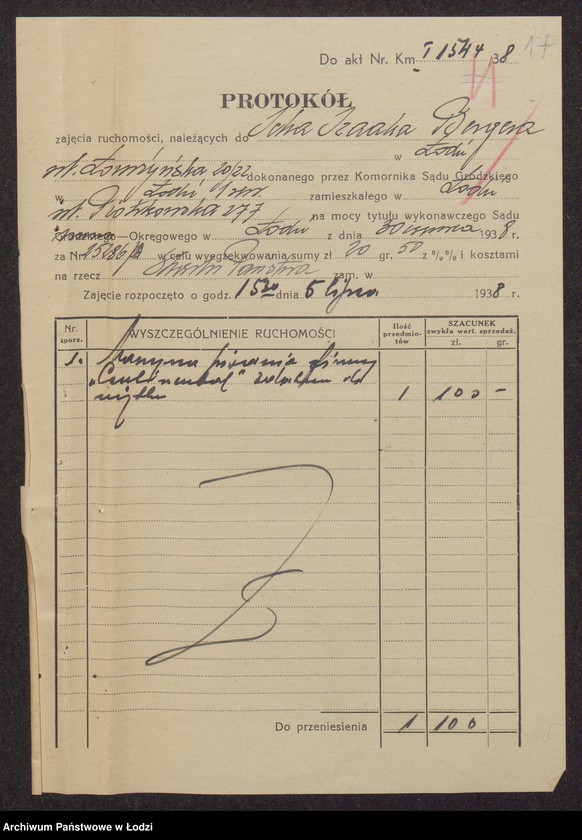 17
Do akt Nr. Km I 1544 38
PROTOKÓŁ
zajęcia ruchomości, należących do Icka Izaaka Bergera
w Łodzi
ul. 20/22 dokonanego przez Komornika Sądu Grodzkiego
w Łodzi rew. zamieszkałego w Łodzi
ul. Piotrkowska 277 na mocy tytułu wykonawczego Sądu
Grodzkiego—Okręgowego w Łodzi z dnia 30 1938 r.
za Nr. w celu wyegzekwowania sumy zł 20 gr. 50 z %% i kosztami
na rzecz Skarbu Państwa zam. w
Zajęcie rozpoczęto o godz. 15 20 dnia 5 lipca 1938 r.
Nr. porz. WYSZCZEGÓLNIENIE RUCHOMOŚCI Ilość przedmiotów SZACUNEK zwykła wart. sprzedaż. zł. gr.
1. Maszyna pisania firmy
„Continental" zdatna do
użytku 1 100 –
Do przeniesienia 1 100
Archiwum Państwowe w Łodzi